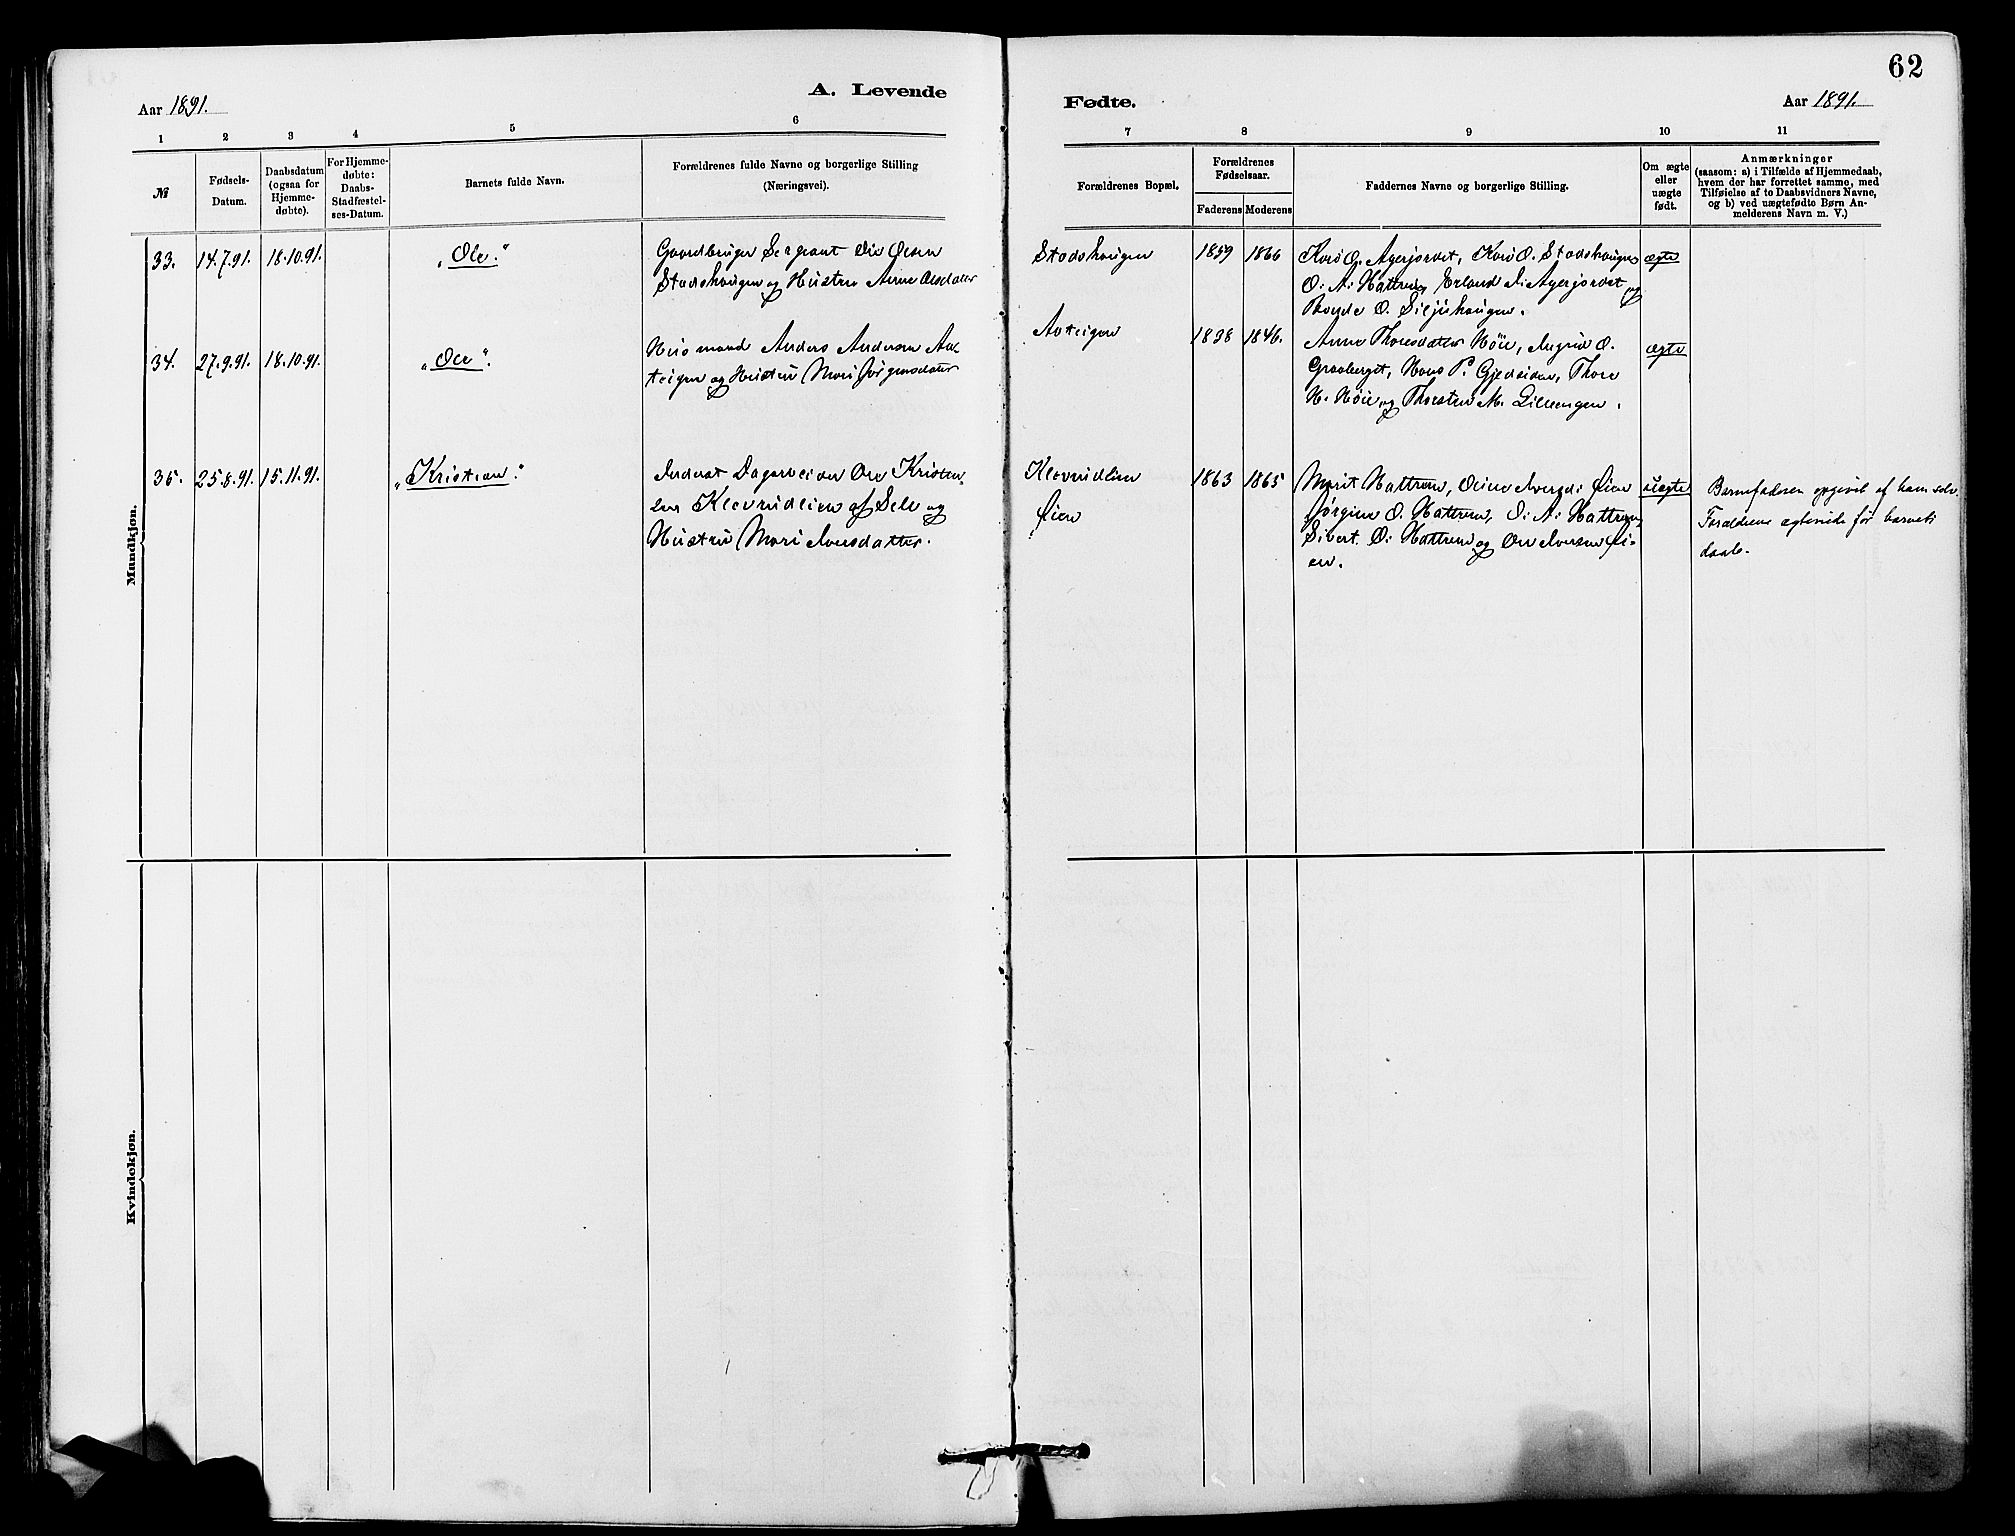 62
Aar 1891.
A. Levende
Fødte.
Aar 1891.
1 2 3 4 5 6
7 8 9 10 11
№
Fødsels-
Datum.
Daabsdatum
(ogsaa for
Hjemme-
døbte).
For Hjemme-
døbte:
Daabs-
Stadfæstel-
ses-Datum.
Barnets fulde Navn.
Forældrenes fulde Navne og borgerlige Stilling
(Næringsvei).
Forældrenes Bopæl.
Forældrenes
Fødselsaar.
Faderens
Moderens
Faddernes Navne og borgerlige Stilling.
Om ægte
eller
uægte
født.
Anmærkninger
(saasom: a) i Tilfælde af Hjemmedaab,
hvem der har forrettet samme, med
Tilføielse af to Daabsvidners Navne,
og b) ved uægtefødte Børn An-
melderens Navn m. V.)
Mandkjøn.
33. 14.7.91. 18.10.91. „Ole."
Gaardbruger Sergeant Ole Olsen
Stadshaugen og Hustru Anne Olsdatter
Stadshaugen 1859 1866
Kari O. Agerjordet, Kari O. Stadshaugen
O. A. Hattrem, Erland I. Agerjordet og
O. Siljuhaugen.
ægte
34. 27.9.91. 18.10.91. „Ole".
Husmand Anders Andersen Aa-
teigen og Hustru Mari Jørgensdatter
1838 1846.
Anne Thoresdatter Høie, Ingrid O.
Graaberget, Hans P. Gjedsiden, Thore
H. Høie og Thorsten M. Lilleengen.
ægte
35. 25.8.91. 15.11.91. „Kristian."
Inderst Dagarbeider Ole Kristen-
sen Klevrudlien af Sel og
Hustru Mari Iversdatter.
Klevrudlien
Øien
1863 1865
Marit Hattrem, Oline Iversd. Øien
Jørgine O. Hattrem, O. A. Hattrem,
Sivert O. Hattrem og Ole Iversen Øi-
en.
uægte
Barnefaderen opgivet af ham selv.
Forældrene ægteviede før barnets
daab.
Kvindekjøn.